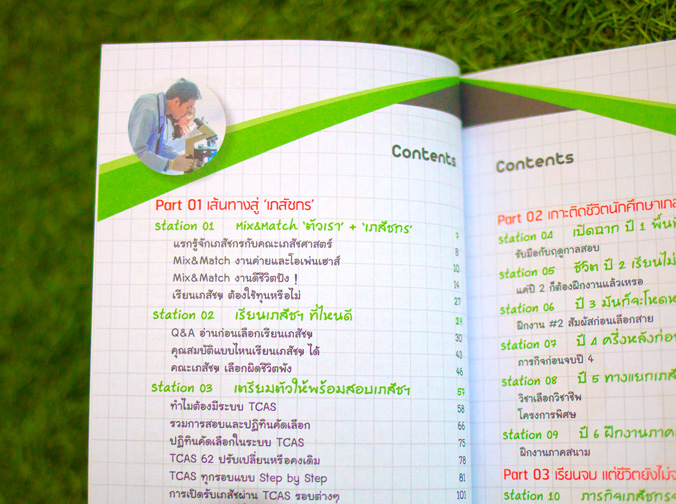 Contents
Part 01 เส้นทางสู่ 'เภสัชกร'
Station 01 Mix&Match 'ตัวเรา' + 'เภสัชกร' 7
แรกรู้จักเภสัชกรกับคณะเภสัชศาสตร์ 8
Mix&Match งานค่ายและโอเพ่นเฮาส์ 10
Mix&Match งานดีชีวิตปัง ! 14
เรียนเภสัชฯ ต้องใช้ทุนหรือไม่ 27
Station 02 เรียนเภสัชฯ ที่ไหนดี 29
Q&A อ่านก่อนเลือกเรียนเภสัชฯ 30
คุณสมบัติแบบไหนเรียนเภสัชฯ ได้ 43
คณะเภสัชฯ เลือกผิดชีวิตพัง 46
Station 03 เตรียมตัวให้พร้อมสอบเภสัชฯ 57
ทำไมต้องมีระบบ TCAS 58
รวมการสอบและปฏิทินคัดเลือก 66
ปฏิทินคัดเลือกในระบบ TCAS 75
TCAS 62 ปรับเปลี่ยนหรือคงเดิม 78
TCAS ทุกรอบแบบ Step by Step 81
การเปิดรับเภสัชฯผ่าน TCAS รอบต่างๆ 101
Contents
Part 02 เกาะติดชีวิตนักศึกษาเภ
Station 04 เปิดฉาก ปี 1 พื้น
รับมือกับฤดูกาลสอบ
Station 05 ชีวิต ปี 2 เรียนไม่
แค่ปี 2 ก็ต้องฝึกงานแล้วเหรอ
Station 06 ปี 3 มันก็จะโหด
ฝึกงาน #2 สัมผัสก่อนเลือกสาย
Station 07 ปี 4 ครึ่งหลังก่อน
ภารกิจก่อนจบปี 4
Station 08 ปี 5 ทางแยกเภสั
วิชาเลือกวิชาชีพ
โครงการพิเศษ
Station 09 ปี 6 ฝึกงานภาค
ฝึกงานภาคสนาม
Part 03 เรียนจบ แต่ชีวิตยังไม่จ
Station 10 ภารกิจเภสัชกร